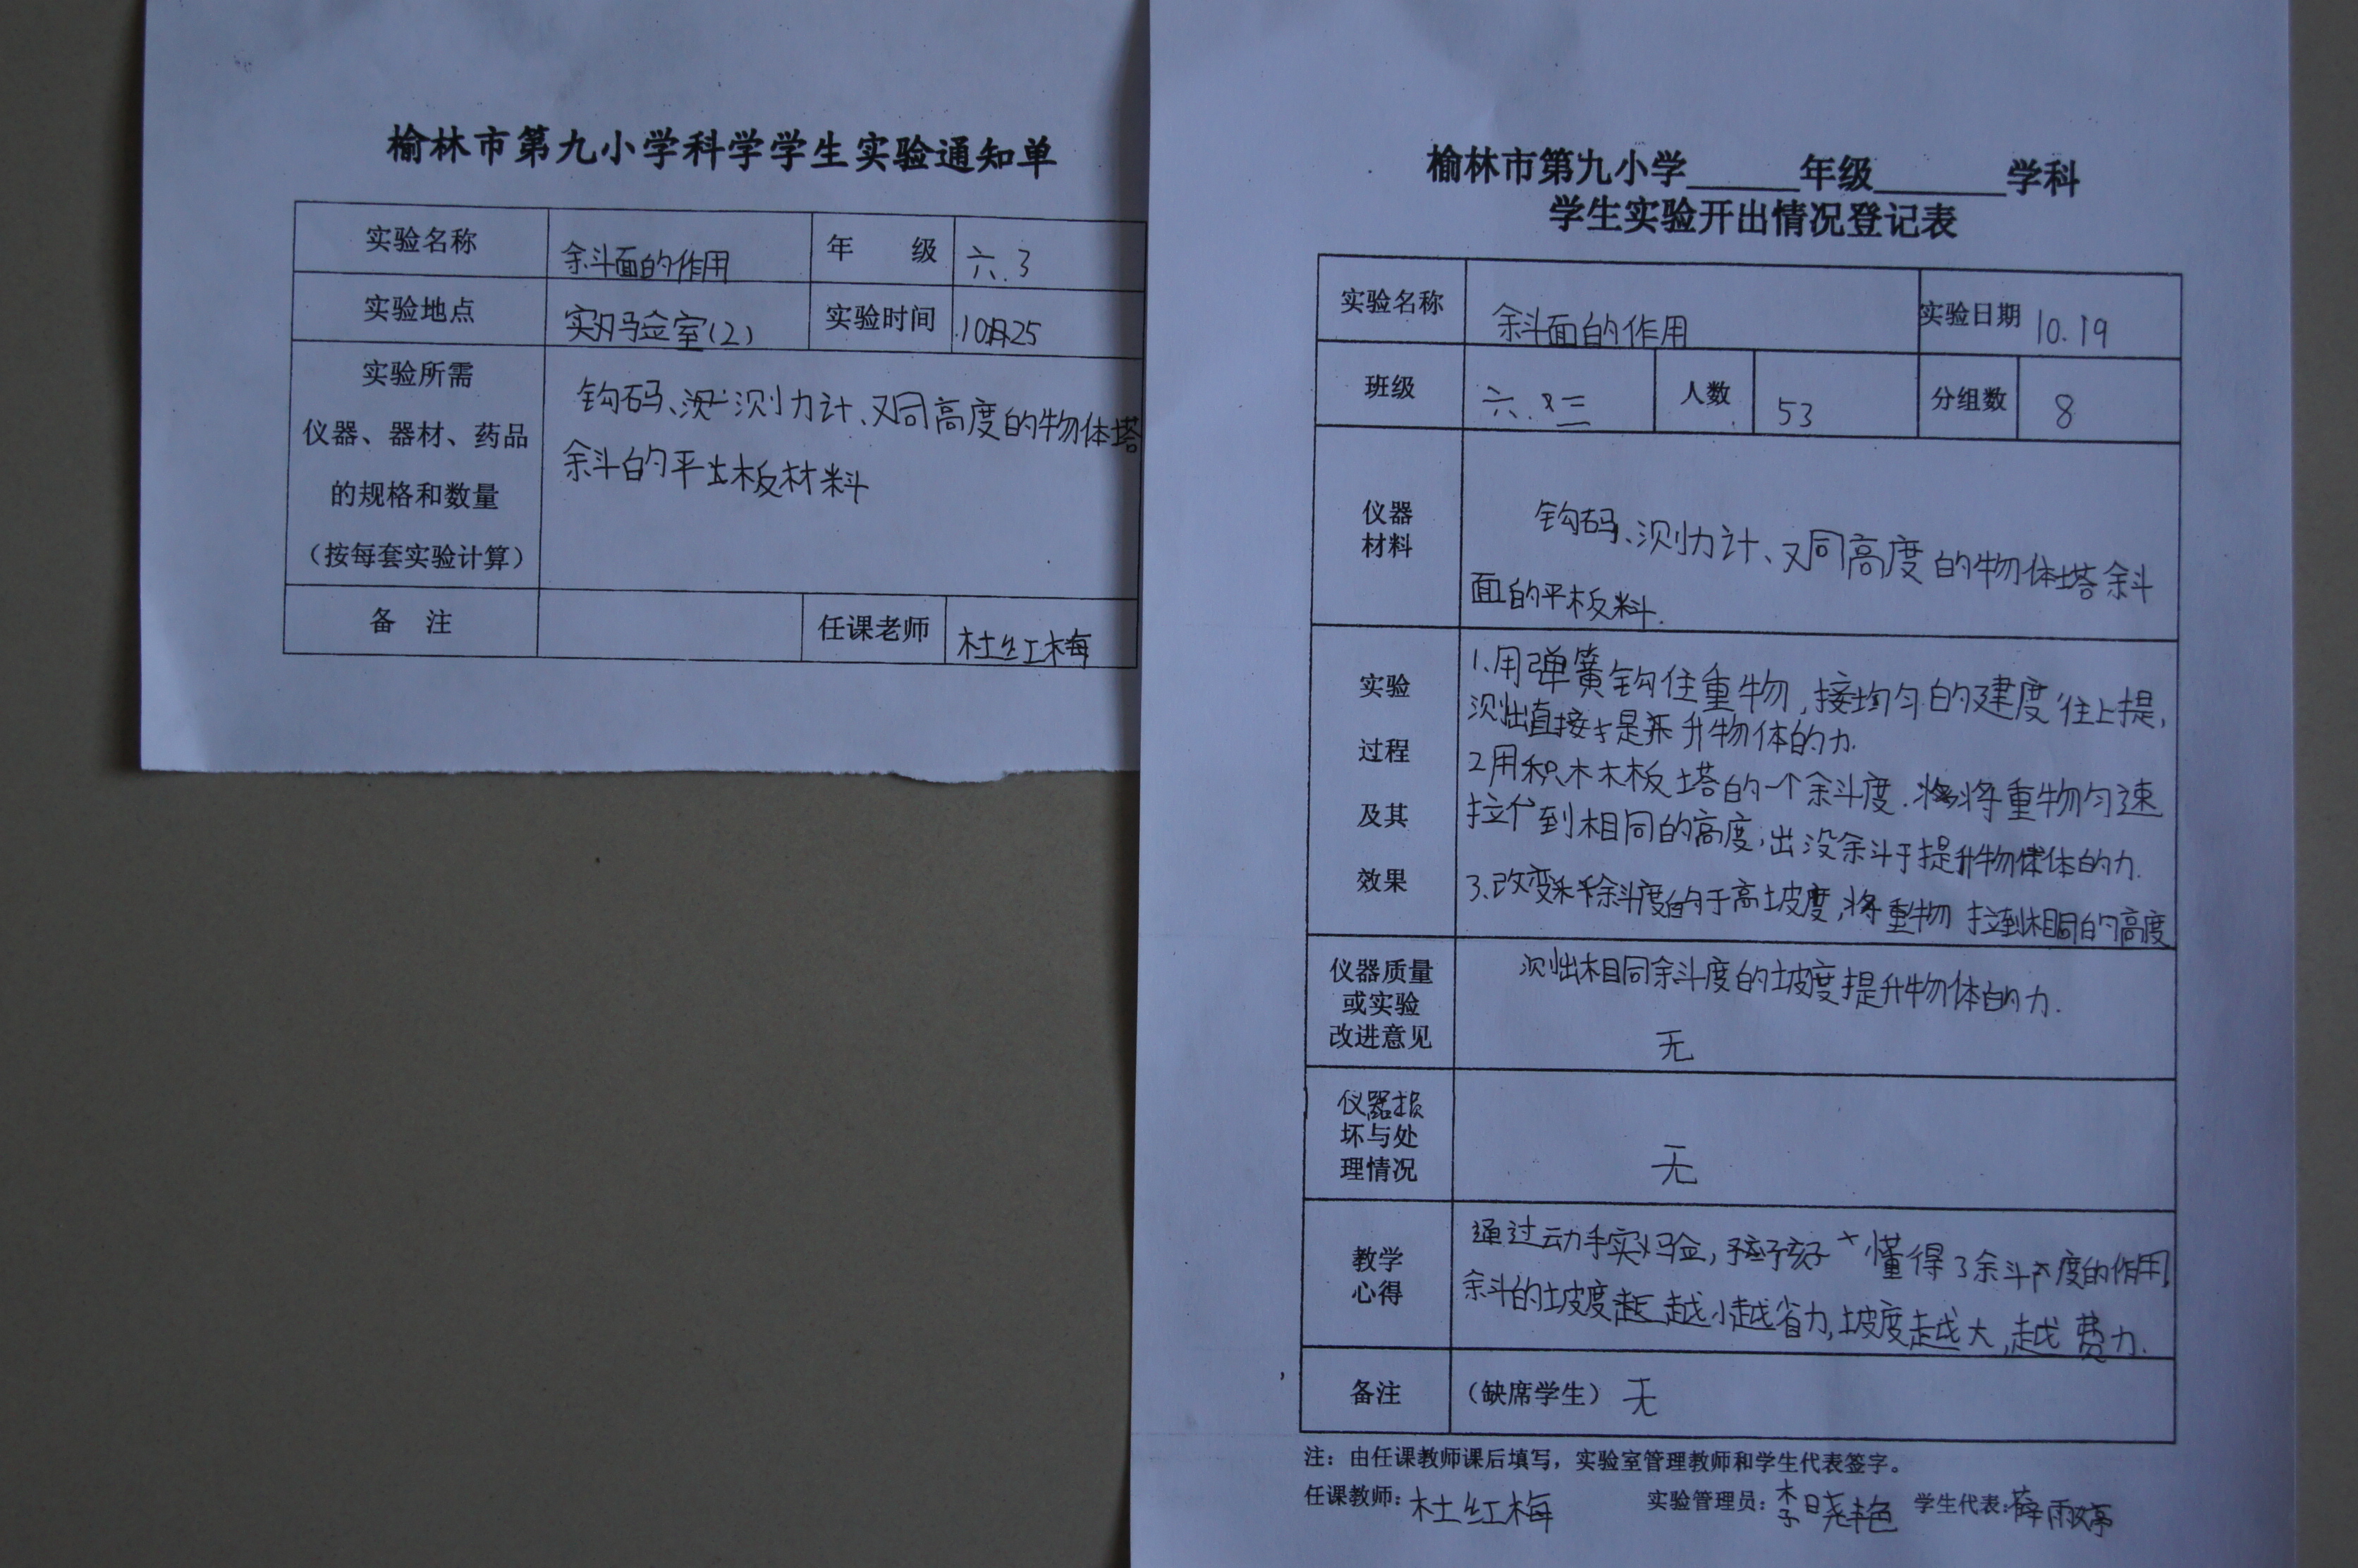 榆林市第九小学科学学生实验通知单
实验名称 余斗面的作用 年 级 六.3
实验地点 实验室(2) 实验时间 10月25
实验所需
仪器、器材、药品
的规格和数量
(按每套实验计算)
钩码、测力计、又同高度的物体塔
余斗的平板材料
备 注 任课老师 杜红梅
榆林市第九小学______年级______学科
学生实验开出情况登记表
实验名称 余斗面的作用 实验日期 10.19
班级 六.三 人数 53 分组数 8
仪器
材料
钩码、测力计、又同高度的物体塔余斗
面的平板料.
实验
过程
及其
效果
1.用弹簧钩住重物,接均匀的建度往上提,
测出直接提升物体的力.
2用积木木板塔的一个余斗度.将重物匀速
拉个到相同的高度,出没余斗于提升物体的力.
3.改变余斗度的于高坡度,将重物拉到相同的高度
仪器质量
或实验
改进意见
测出相同余斗度的坡度提升物体的力.
无
仪器损
坏与处
理情况
无
教学
心得
通过动手实验,孩子懂得了余斗度的作用,
余斗的坡度越小越省力,坡度越大,越费力.
备注 (缺席学生) 无
注:由任课教师课后填写,实验室管理教师和学生代表签字。
任课教师:杜红梅 实验管理员:李晓艳 学生代表:薛雨婷